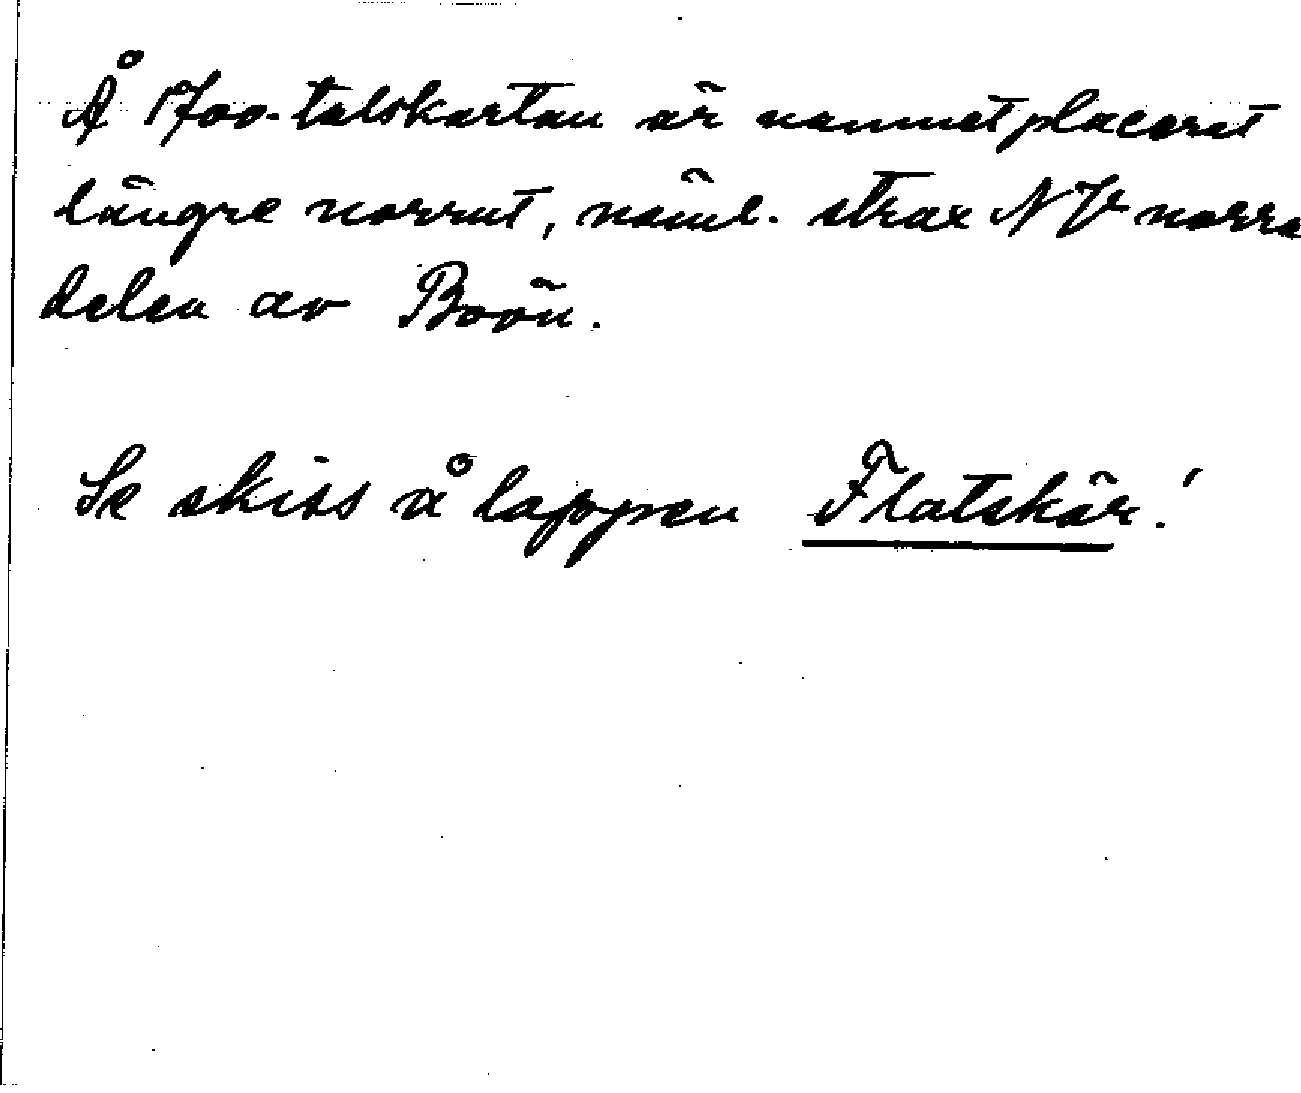 Å 1700-talskartan är namnet placerat
längre norrut, näml. strax NV norra
delen av Boön.
Se skiss å lappen Flatskär!